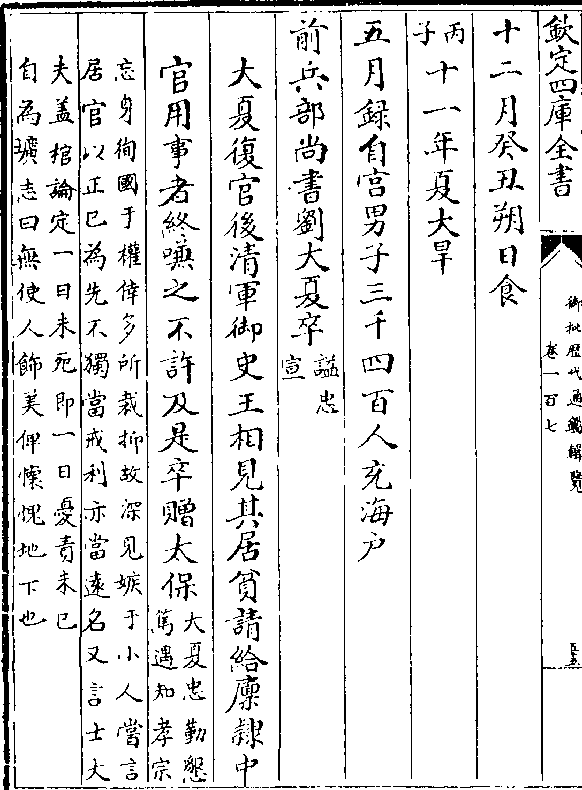 欽定四庫全書
御批歷代通鑑輯覽
卷一百七
十二月癸丑朔日食
丙子
十一年夏大旱
五月録自宫男子三千四百人充海户
前兵部尚書劉大夏卒
謚忠
宣
大夏復官後清軍御史王相見其居貧請給廩隸中
官用事者終嗛之不許及是卒贈太保
大夏忠勤懇
篤遇知孝宗
忘身徇國于權倖多所裁抑故深見嫉于小人嘗言
居官以正已為先不獨當戒利亦當遠名又言士大
夫盖棺論定一日未死即一日憂責未已
自為壙志曰無使人飾美俾懷愧地下也